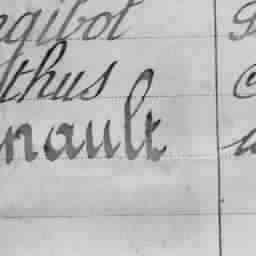 egibot
thus
nault